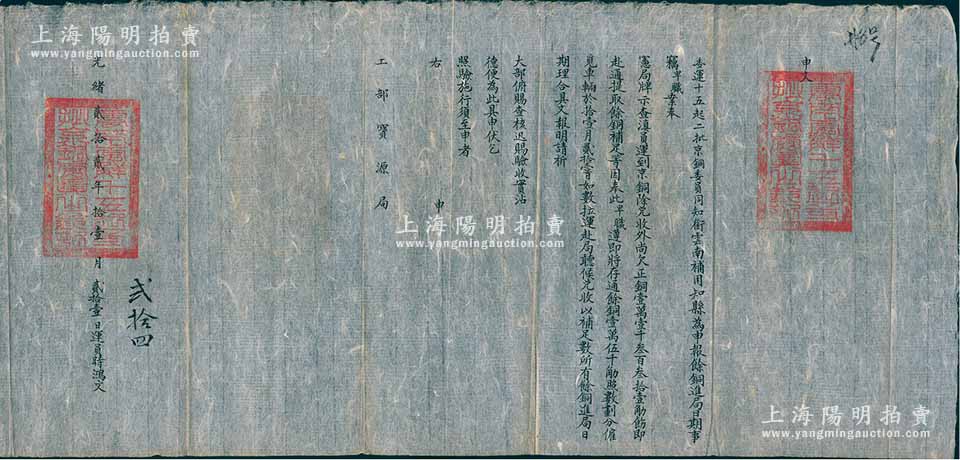 申文
委運十五起二批京銅委員同知銜雲南補用知縣為申報餘銅進局日期事
竊卑職案奉
憲局牌示查滇員運到京銅除兌收外尚欠正銅壹萬壹千叁百叁拾壹觔飭即
赴通提取餘銅補足等因奉此卑職遵即將存通餘銅壹萬伍千觔照數劃分僱
覓車輛於拾壹月貳拾壹日如數拉運赴局聽候兌收以補足數所有餘銅進局日
期理合具文報明請祈
大部俯賜查核迅賜驗收實沾
德便為此具申伏乞
照驗施行須至申者
右申
工部寶源局
光緒貳拾貳年拾壹月貳拾壹日運員時鴻文
弐拾四
上海陽明拍賣
www.yangmingauction.com
上海陽明拍賣
www.yangmingauction.com
上海陽明拍賣
www.yangmingauction.com